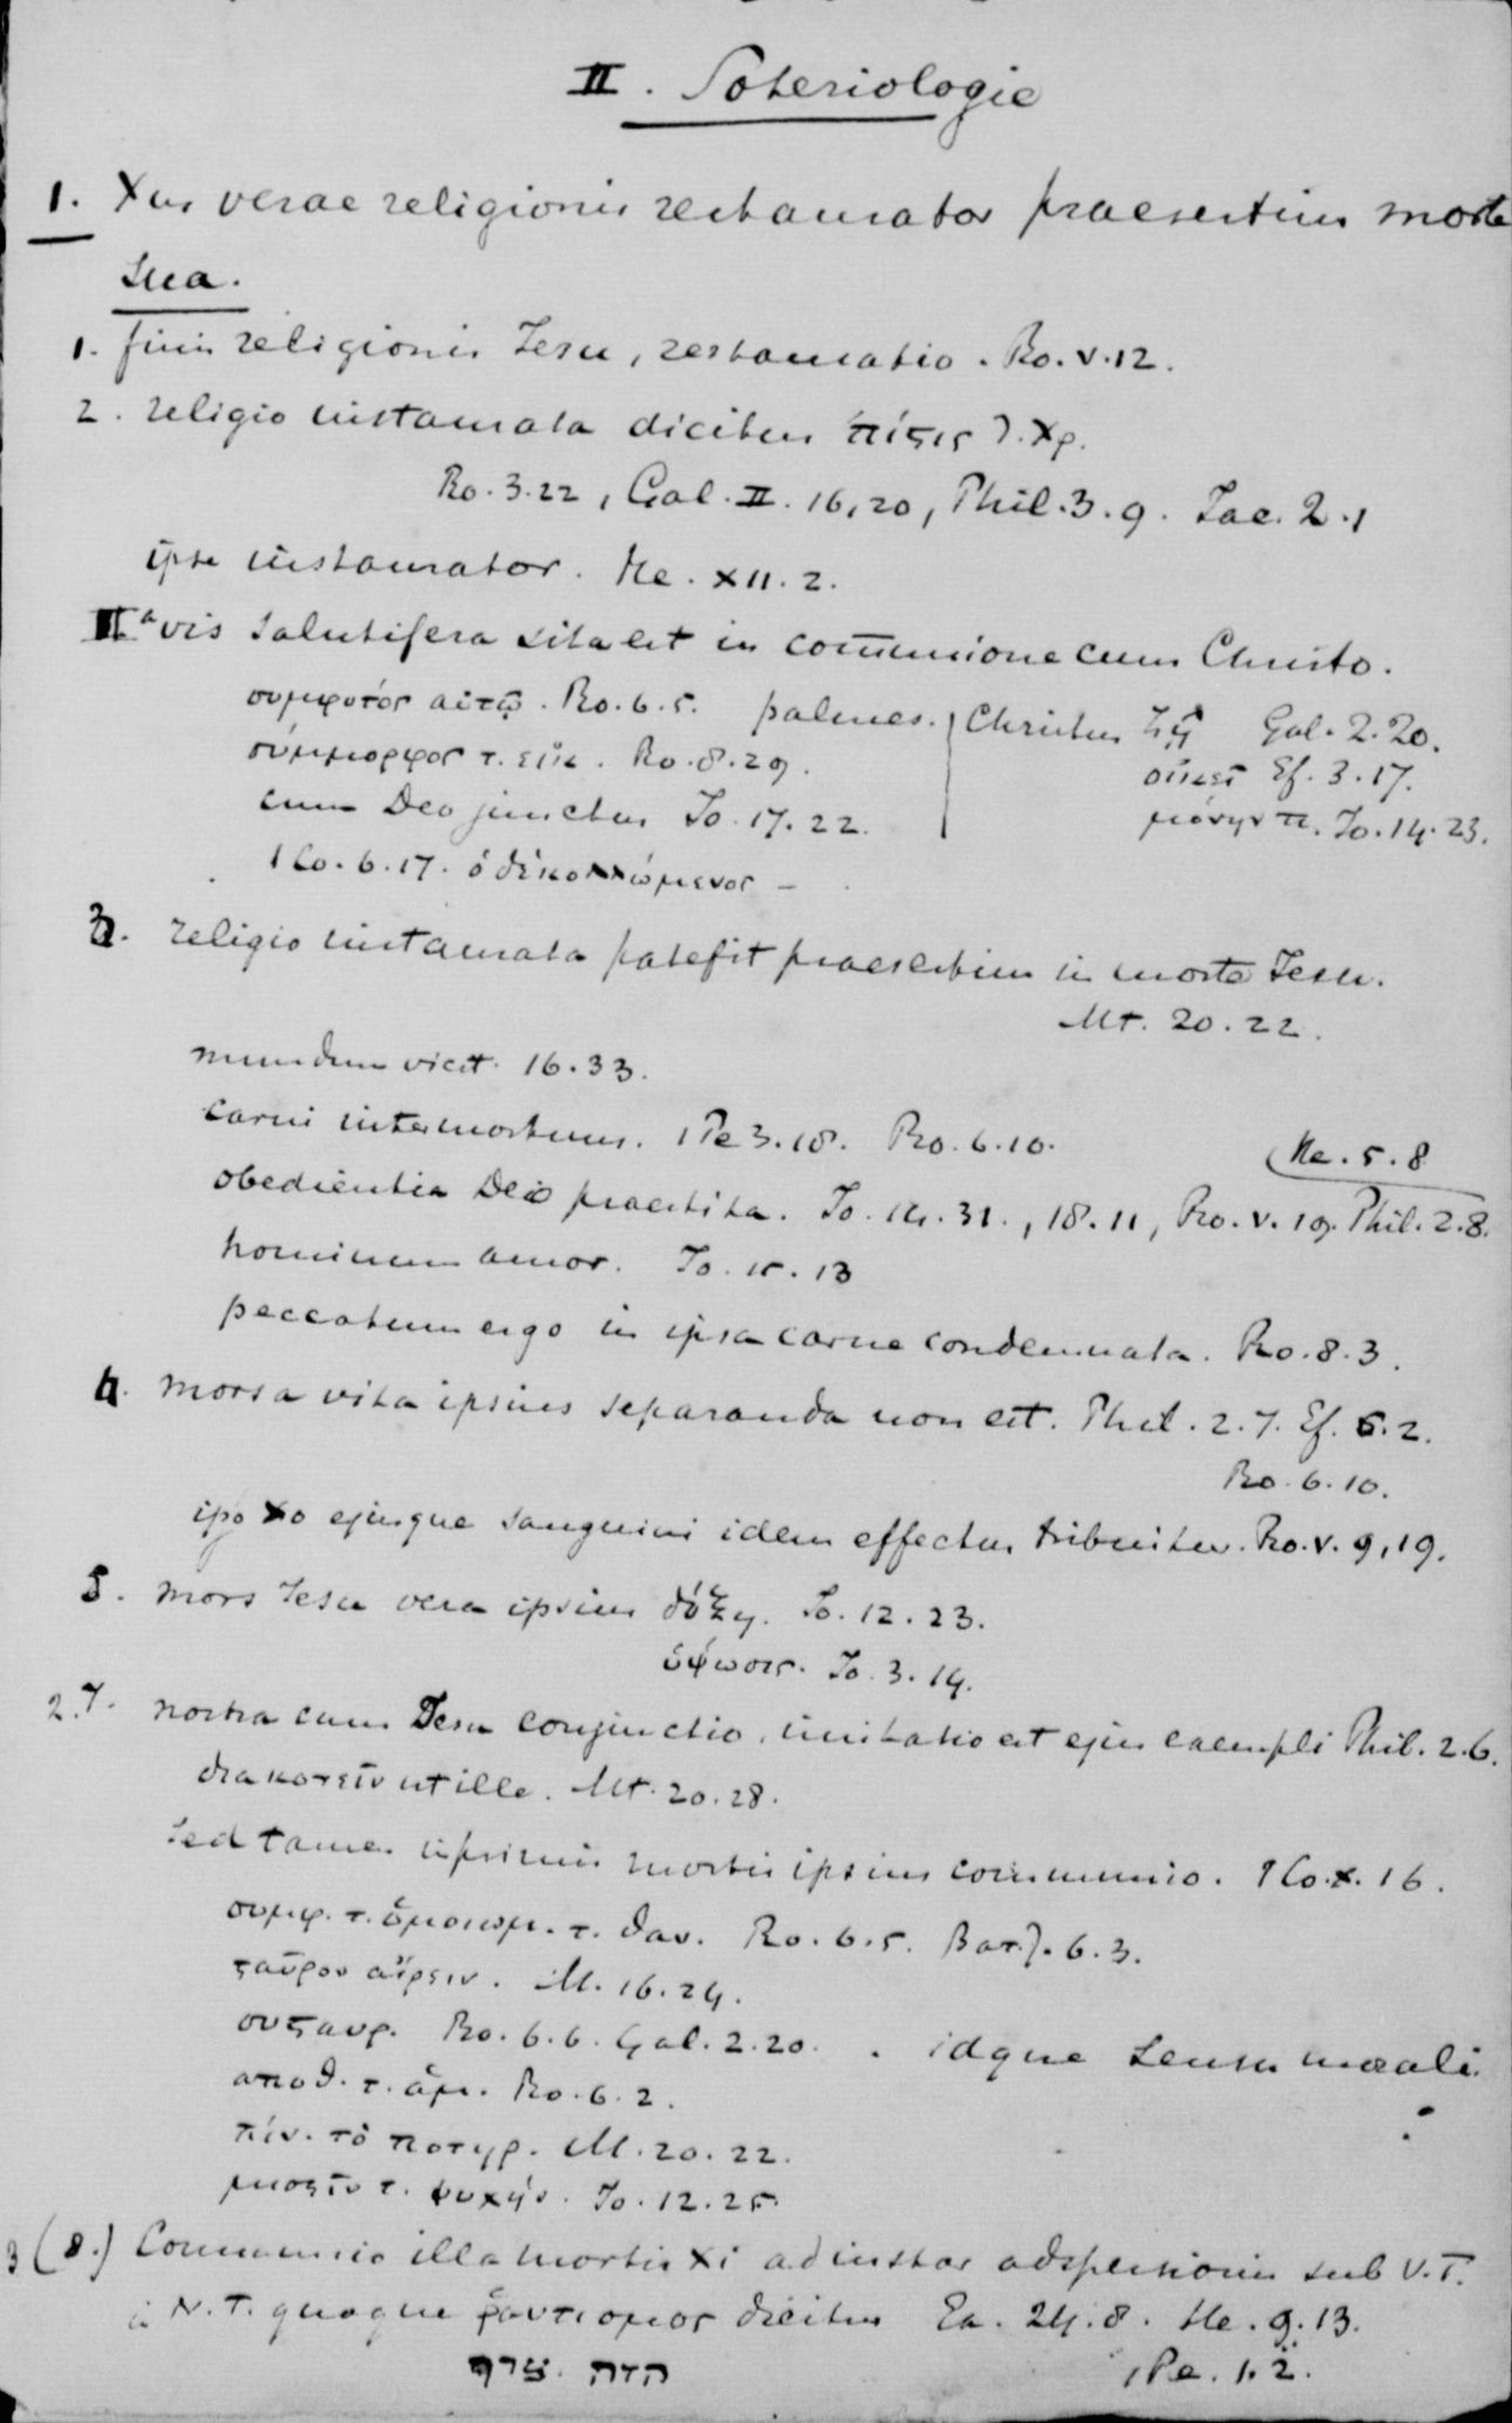 II. Soteriologie
1. Xus verae religionis restaurator praesertim morte
sua.
1. finis religionis Iesu, restauratio. Ro. v. 12.
2. religio instaurata dicitur πίςις Ἰ. Χρ.
Ro. 3.22, Gal. II. 16,20, Phil. 3.9. Iac. 2.1
ipse instaurator. He. XII. 2.
IIa vis salutifera sita est in comunione cum Christo.
συμφυτός αὐτῷ. Ro. 6.5. palmes. | Christus ζῇ Gal. 2.20.
σύμμορφος τ. εἰκ. Ro. 8.29. οἰκεῖ Ef. 3.17.
cum Deo junctus Jo. 17.22. μόνην π. Jo. 14.23.
1 Co. 6.17. ὁ δὲ κολλώμενος —
3. religio instaurata patefit praesertim in morte Iesu.
Mt. 20.22.
mundum vicit. 16.33.
carni intermortuus. 1 Pe 3.18. Ro. 6.10.
He. 5.8
obedientia Deo praestita. Jo. 14.31., 18.11, Ro. v. 19. Phil. 2.8.
hominum amor. Jo. 15.13
peccatum ergo in ipsa carne condemnata. Ro. 8.3.
4. mors a vita ipsius separanda non est. Phil. 2.7. Ef. 5.2.
Ro. 6.10.
ipso Xo ejusque sanguini idem effectus tribuitur. Ro. v. 9,19.
5. mors Iesu vera ipsius δόξη. Jo. 12.23.
ὕψωσις. Jo. 3.14.
2.7. nostra cum Iesu conjunctio, imitatio est ejus exempli Phil. 2.6.
διακονεῖν ut ille. Mt. 20.28.
sed tamen inprimis mortis ipsius communio. 1 Co. x. 16.
συμφ. τ. ὅμοιωμ. τ. θαν. Ro. 6.5. βαπτ. 6.3.
ςαῦρον αἴρειν. M. 16.24.
συςαυρ. Ro. 6.6. Gal. 2.20. . idque sensu morali.
αποθ. τ. ἁμ. Ro. 6.2.
πίν. τὸ ποτηρ. M. 20.22.
μισεῖν τ. ψυχήν. Jo. 12.25.
3 (8.) Communio illa mortis Xi ad instar adspersionis sub V.T.
in N.T. quoque ῥαντισμος dicitur Ex. 24.8. He. 9.13.
הזה זרק. 1 Pe. 1.2.